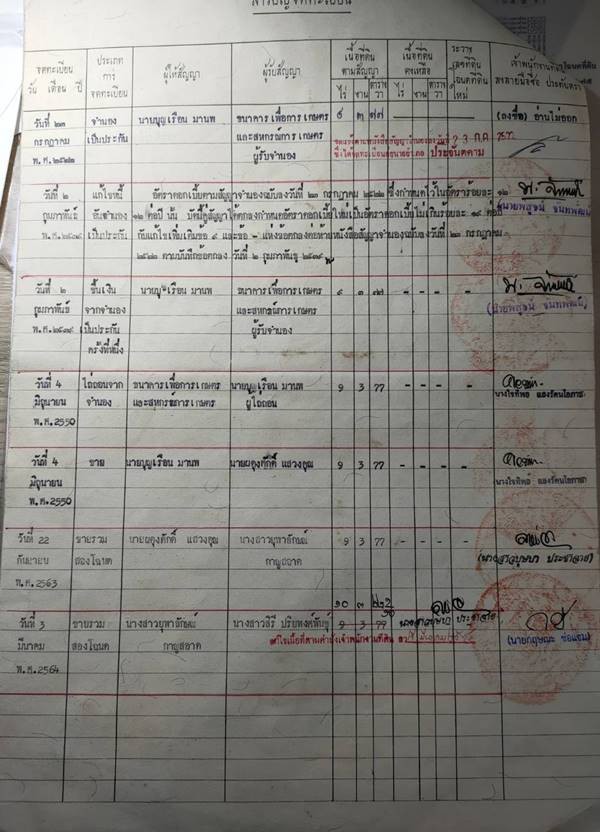 สารบัญจดทะเบียน
จดทะเบียน วัน เดือน ปี
ประเภทการจดทะเบียน
ผู้ให้สัญญา
ผู้รับสัญญา
เนื้อที่ดินตามสัญญา ไร่ งาน ตารางวา
เนื้อที่ดินคงเหลือ ไร่ งาน ตารางวา
ระวาง เลขที่ดิน โฉนดที่ดินใหม่
วันที่ ๒๓ จำนอง นายบุญเรือน มานพ ธนาคารเพื่อการเกษตร ๙ ๓ ๗๗ (ลงชื่อ) อ่านไม่ออก
กรกฎาคม เป็นประกัน และสหกรณ์การเกษตร
พ.ศ.๒๕๒๒ ผู้รับจำนอง ประจันตคาม
วันที่ ๒ แก้ไขหนี้ อัตราดอกเบี้ยตามสัญญาจำนองฉบับลงวันที่ ๒๓ กรกฎาคม ๒๕๒๒ ซึ่งกำหนดไว้ในอัตราร้อยละ ๑๒
กุมภาพันธ์ อันจำนอง ๑๒ ต่อปี นั้น บัดนี้คู่สัญญาได้ตกลงกำหนดอัตราดอกเบี้ยใหม่เป็นอัตราดอกเบี้ยไม่เกินร้อยละ ๑๙ ต่อปี
เป็นประกัน
๒๕๒๒ ตามบันทึกข้อตกลง วันที่ ๒ กุมภาพันธ์
วันที่ ๒ ขึ้นเงิน นายบุญเรือน มานพ ธนาคารเพื่อการเกษตร ๙ ๓ ๗๗ - - - -
กุมภาพันธ์ จากจำนอง และสหกรณ์การเกษตร
เป็นประกัน ผู้รับจำนอง
ครั้งที่หนึ่ง
วันที่ 4 ไถ่ถอนจาก ธนาคารเพื่อการเกษตร นายบุญเรือน มานพ 9 3 77 - - - -
มิถุนายน จำนอง และสหกรณ์การเกษตร ผู้ไถ่ถอน
พ.ศ.2550
วันที่ 4 ขาย นายบุญเรือน มานพ นายผดุงศักดิ์ แสวงคุณ 9 3 77 - - - -
มิถุนายน
พ.ศ.2550
วันที่ 22 ขายรวม นายผดุงศักดิ์ แสวงคุณ นางสาวยุพาลักษณ์ 9 3 77 - - - -
กันยายน สองโฉนด กาญสอาด (นางสาวบุษบา ประชาลาย)
พ.ศ.2563
๑๐ ๓
วันที่ 3 ขายรวม นางสาวยุพาลักษณ์ 9 3 77 (นายกฤษณะ ช่อแฉม)
มีนาคม สองโฉนด กาญสอาด แก้ไขเนื้อที่ตามคำสั่งเจ้าพนักงานที่ดิน
พ.ศ.2564